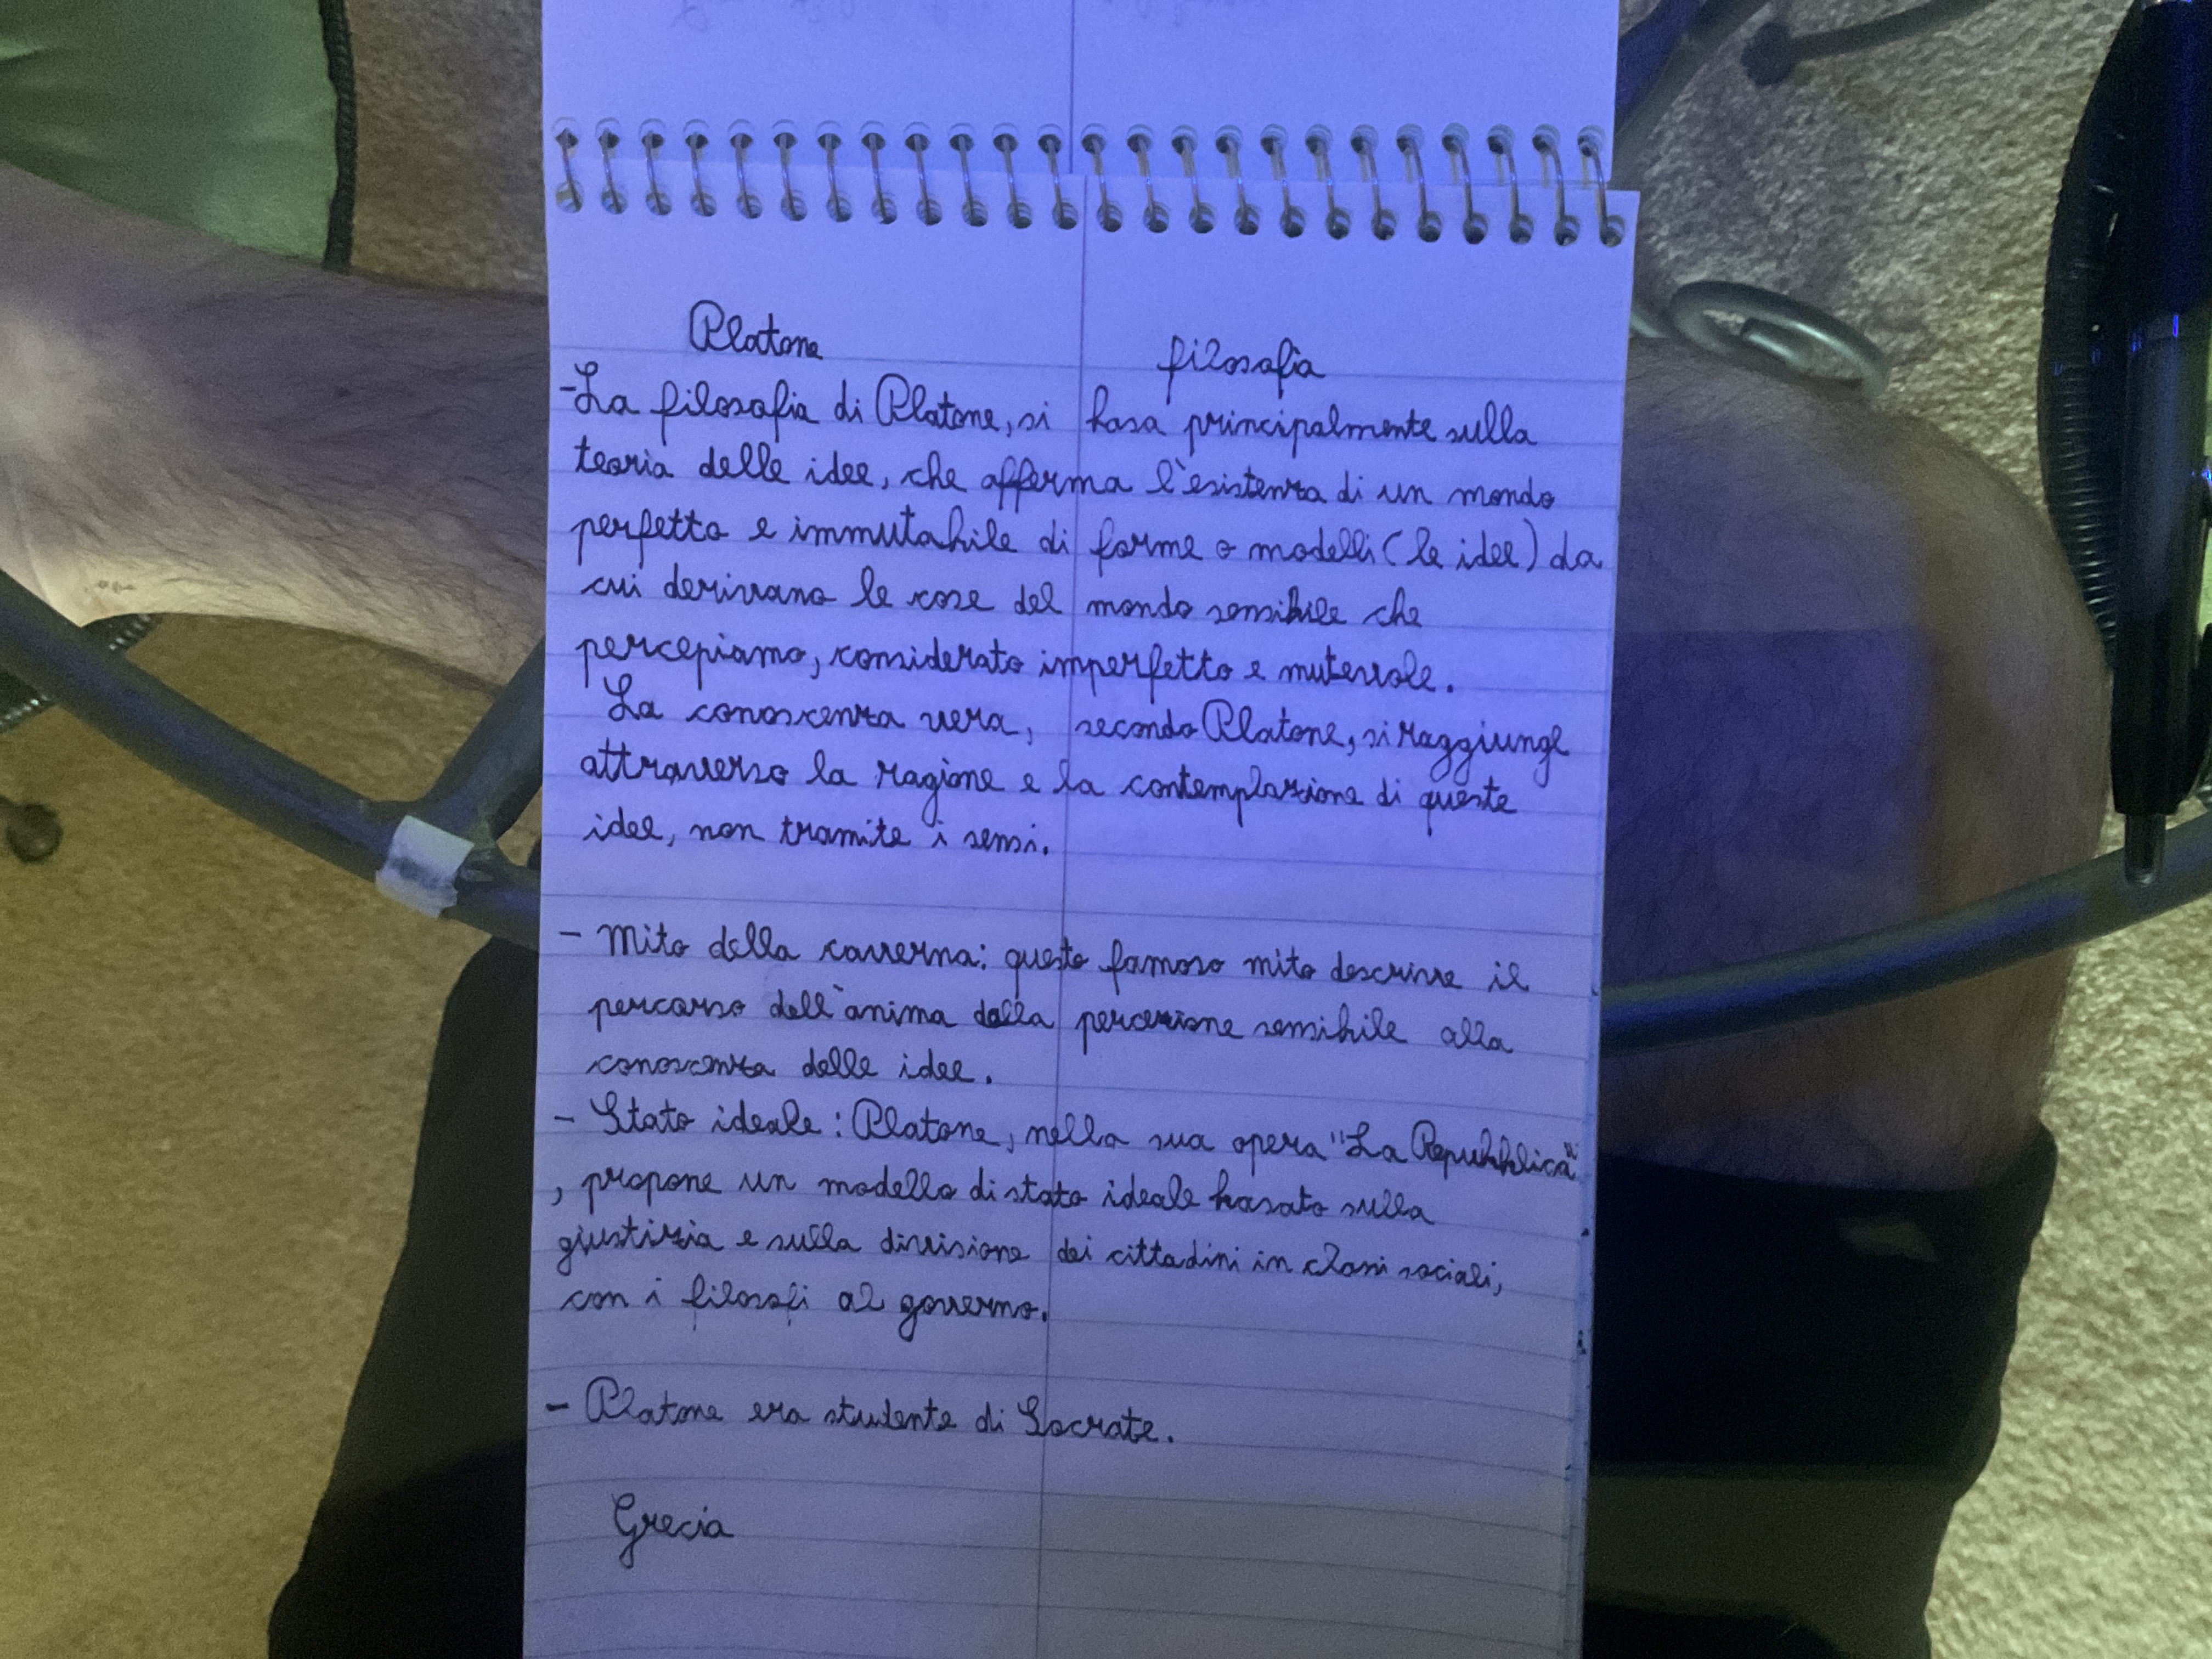 Platone filosofia
-La filosofia di Platone, si basa principalmente sulla
teoria delle idee, che afferma l'esistenza di un mondo
perfetto e immutabile di forme o modelli (le idee) da
cui derivano le cose del mondo sensibile che
percepiamo, considerato imperfetto e mutevole.
La conoscenza vera, secondo Platone, si raggiunge
attraverso la ragione e la contemplazione di queste
idee, non tramite i sensi.
- Mito della caverna: questo famoso mito descrive il
percorso dell'anima dalla percezione sensibile alla
conoscenza delle idee.
- Stato ideale: Platone, nella sua opera "La Repubblica"
, propone un modello di stato ideale basato sulla
giustizia e sulla divisione dei cittadini in classi sociali,
con i filosofi al governo.
- Platone era studente di Socrate.
Grecia